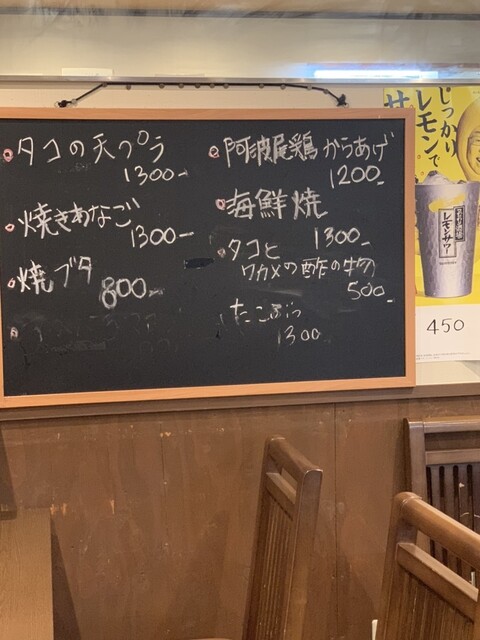 タコの天プラ
1300-
焼きあなご
1300-
焼ブタ
800-
阿波尾鶏からあげ
1200-
海鮮焼
1300-
タコと
ワカメの酢の物
500-
たこぶつ
1300
しっかり
レモンで、
サ
レモンサワー
450